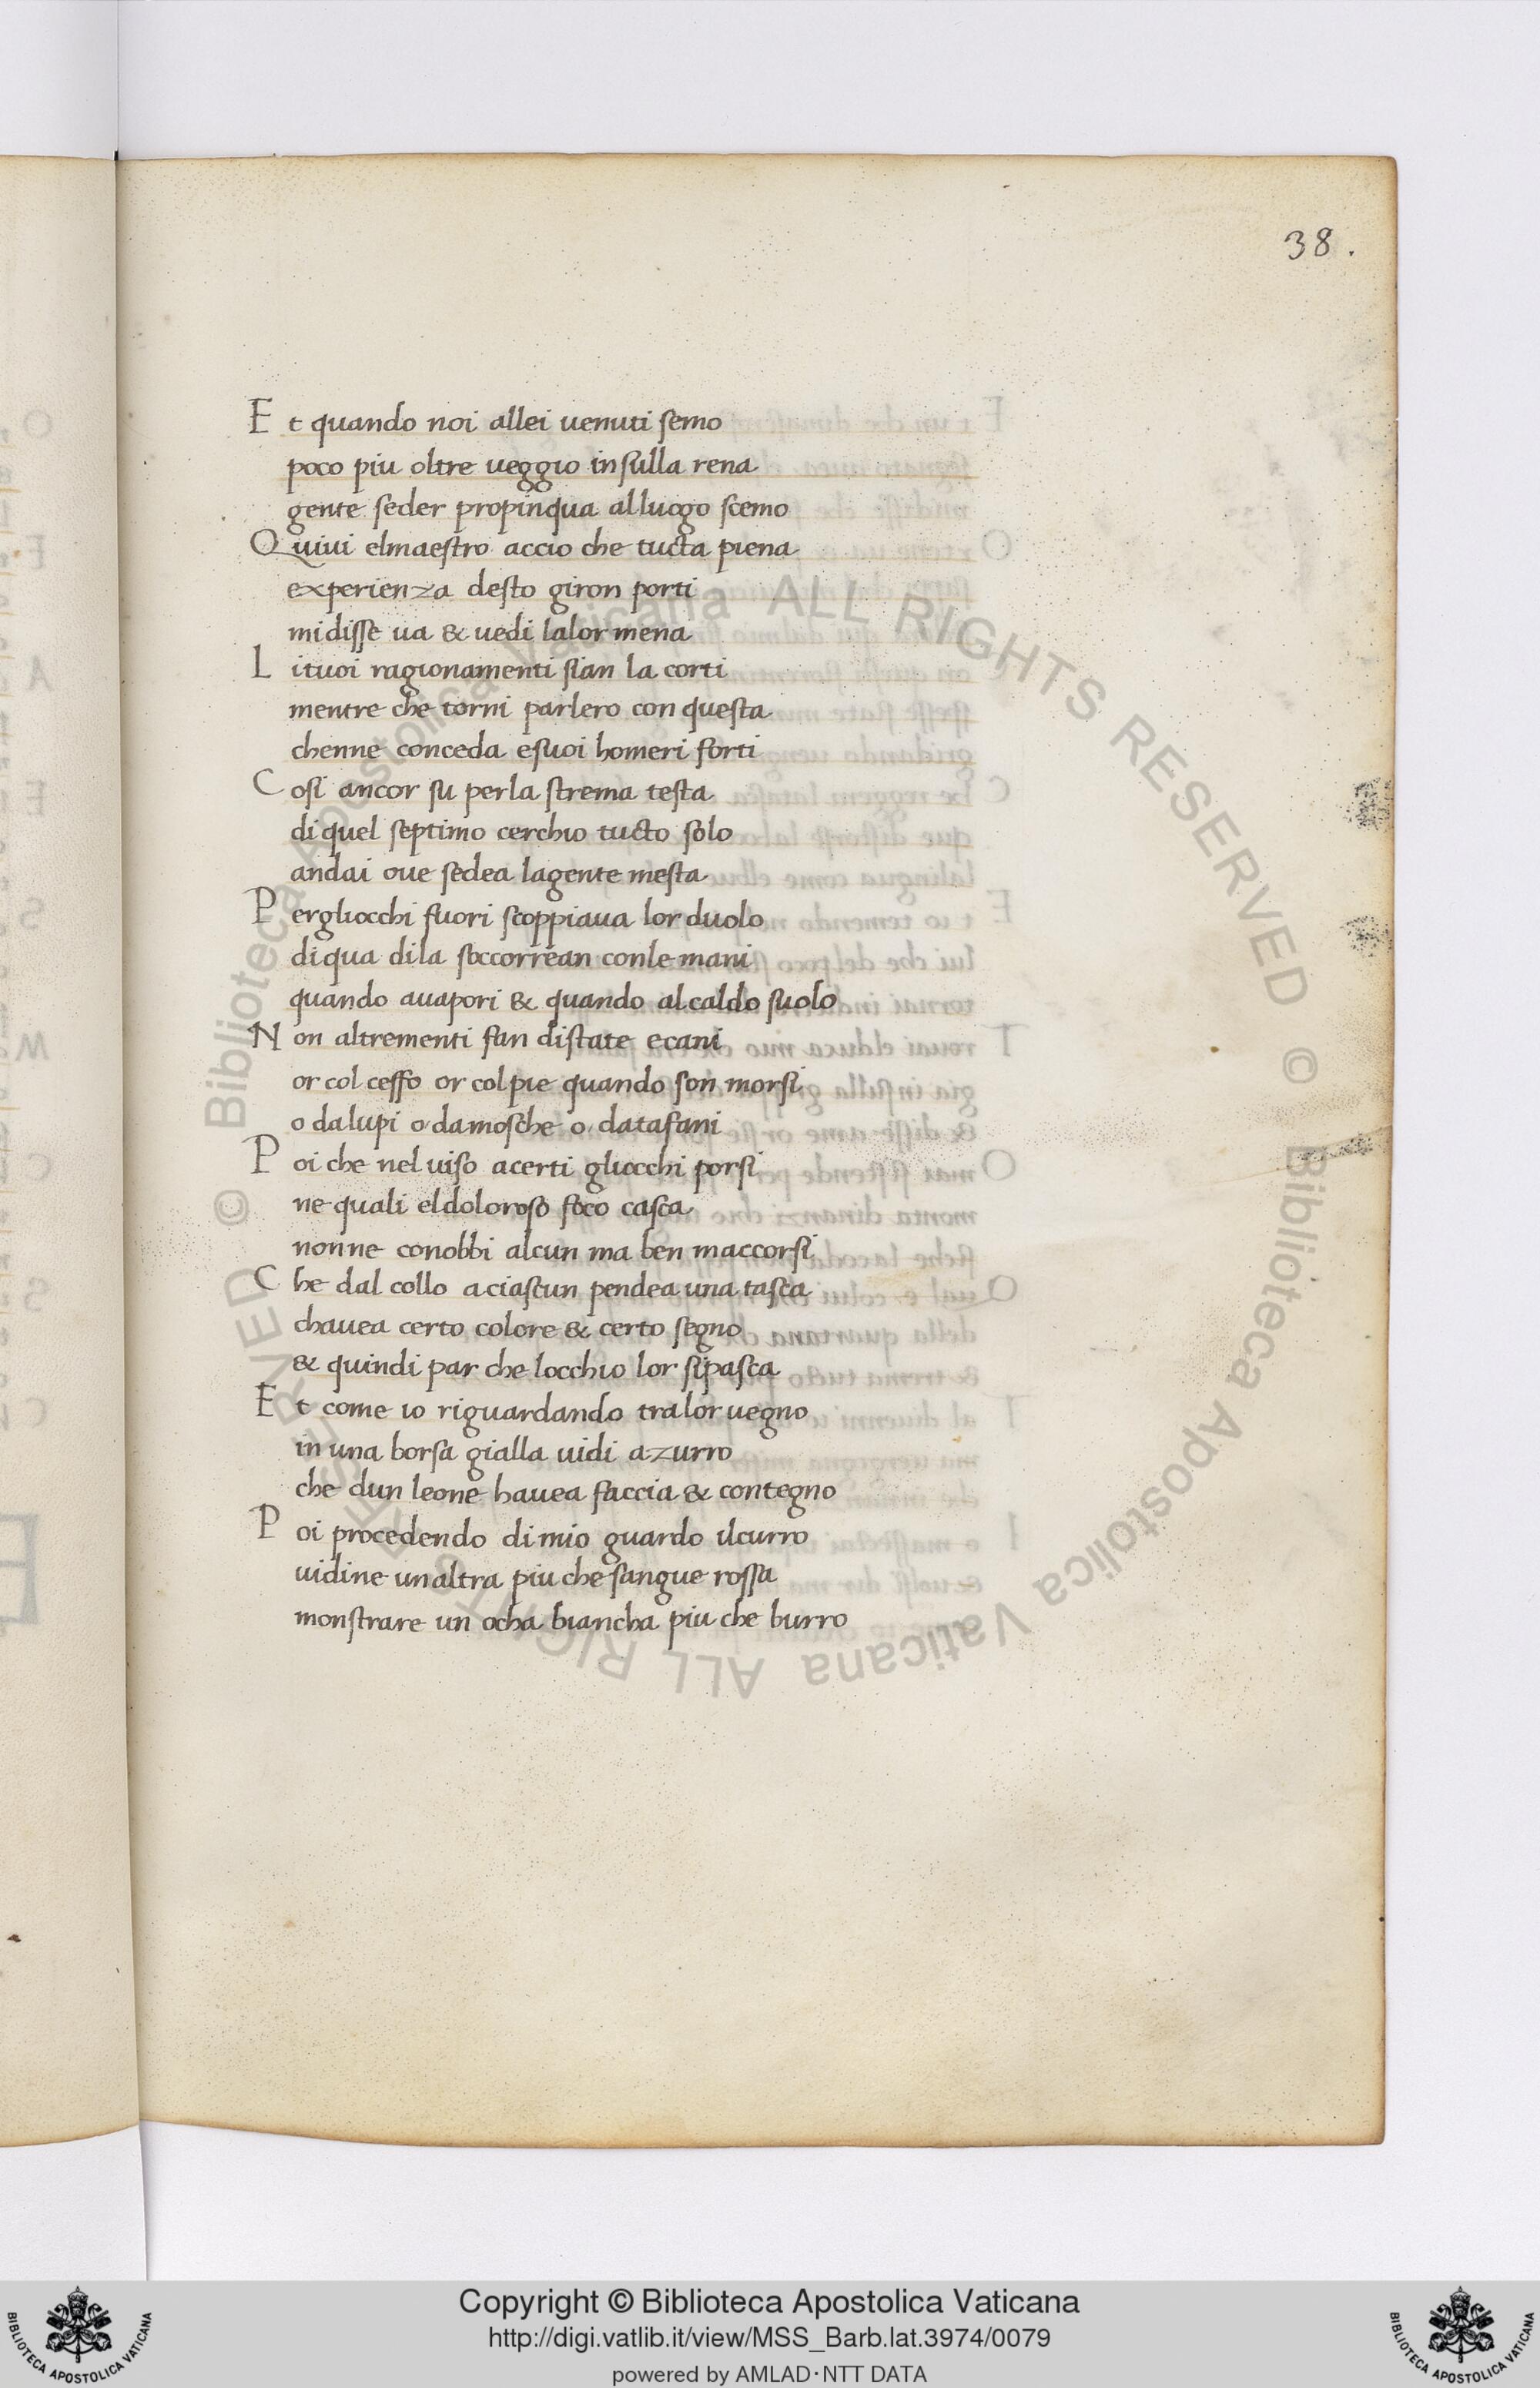 38.
Et quando noi allei uenuti semo
poco piu oltre ueggio insulla rena
gente seder propinqua alluogo scemo
Quiui elmaestro accio che tucta piena
experienza desto giron porti
midisse ua & uedi lalor mena
Lituoi ragionamenti sian la corti
mentre che torni parlero con questa
chenne conceda esuoi homeri forti
Cosi ancor su perla strema testa
di quel septimo cerchio tucto solo
andai oue sedea lagente mesta
Pergliocchi fuori scoppiaua lor duolo
di qua dila soccorrean conle mani
quando auapori & quando alcaldo suolo
Non altrementi fan distate ecani
or col ceffo or colpie quando son morsi
o dalupi o damosche o datafani
Poi che nel uiso acerti gliocchi porsi
ne quali eldoloroso foco casca
nonne conobbi alcun ma ben maccorsi
Che dal collo aciascun pendea una tasca
chauea certo colore & certo segno
& quindi par che locchio lor sipasca
Et come io riguardando tralor uegno
in una borsa gialla uidi azurro
che dun leone hauea faccia & contegno
Poi procedendo di mio guardo ilcurro
uidine unaltra piu che sangue rossa
monstrare un ocha biancha piu che burro
Copyright © Biblioteca Apostolica Vaticana
http://digi.vatlib.it/view/MSS_Barb.lat.3974/0079
powered by AMLAD·NTT DATA
BIBLIOTECA APOSTOLICA VATICANA
BIBLIOTECA APOSTOLICA VATICANA
© Biblioteca Apostolica Vaticana ALL RIGHTS RESERVED
© Biblioteca Apostolica Vaticana ALL RIGHTS RESERVED